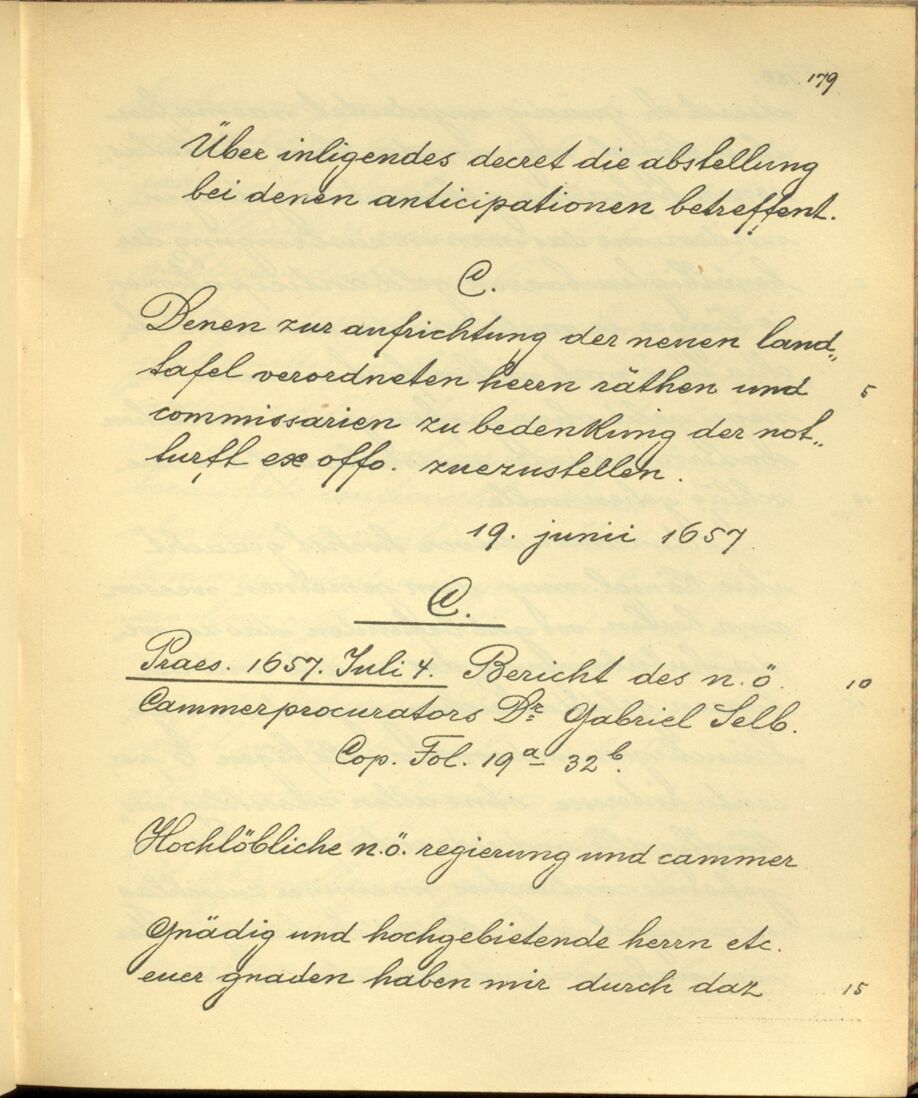 179
Über inligendes decret die abstellung
bei denen anticipationen betreffent.
C.
Denen zur aufrichtung der neuen land„
tafel verordneten herrn räthen und 5
commissarien zu bedenkung der not„
turft ex offo. zuezustellen.
19. junii 1657
C.
Praes. 1657. Juli 4. Bericht des n.ö. 10
Cammerprocurators Dr. Gabriel Selb.
Cop. Fol. 19a – 32b.
Hochlöbliche n.ö. regierung und cammer
Gnädig und hochgebietende herrn etc.
euer gnaden haben mir durch daz 15